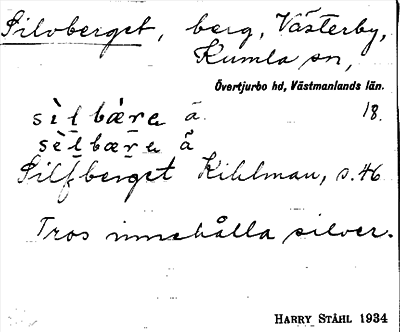 Silvberget, berg, Västerby,
Kumla sn,
Övertjurbo hd, Västmanlands län.
18.
sèlbære ä
sèlbære å
Silfberget Kihlman, s. 46
Tros innehålla silver.
HARRY STÅHL 1934